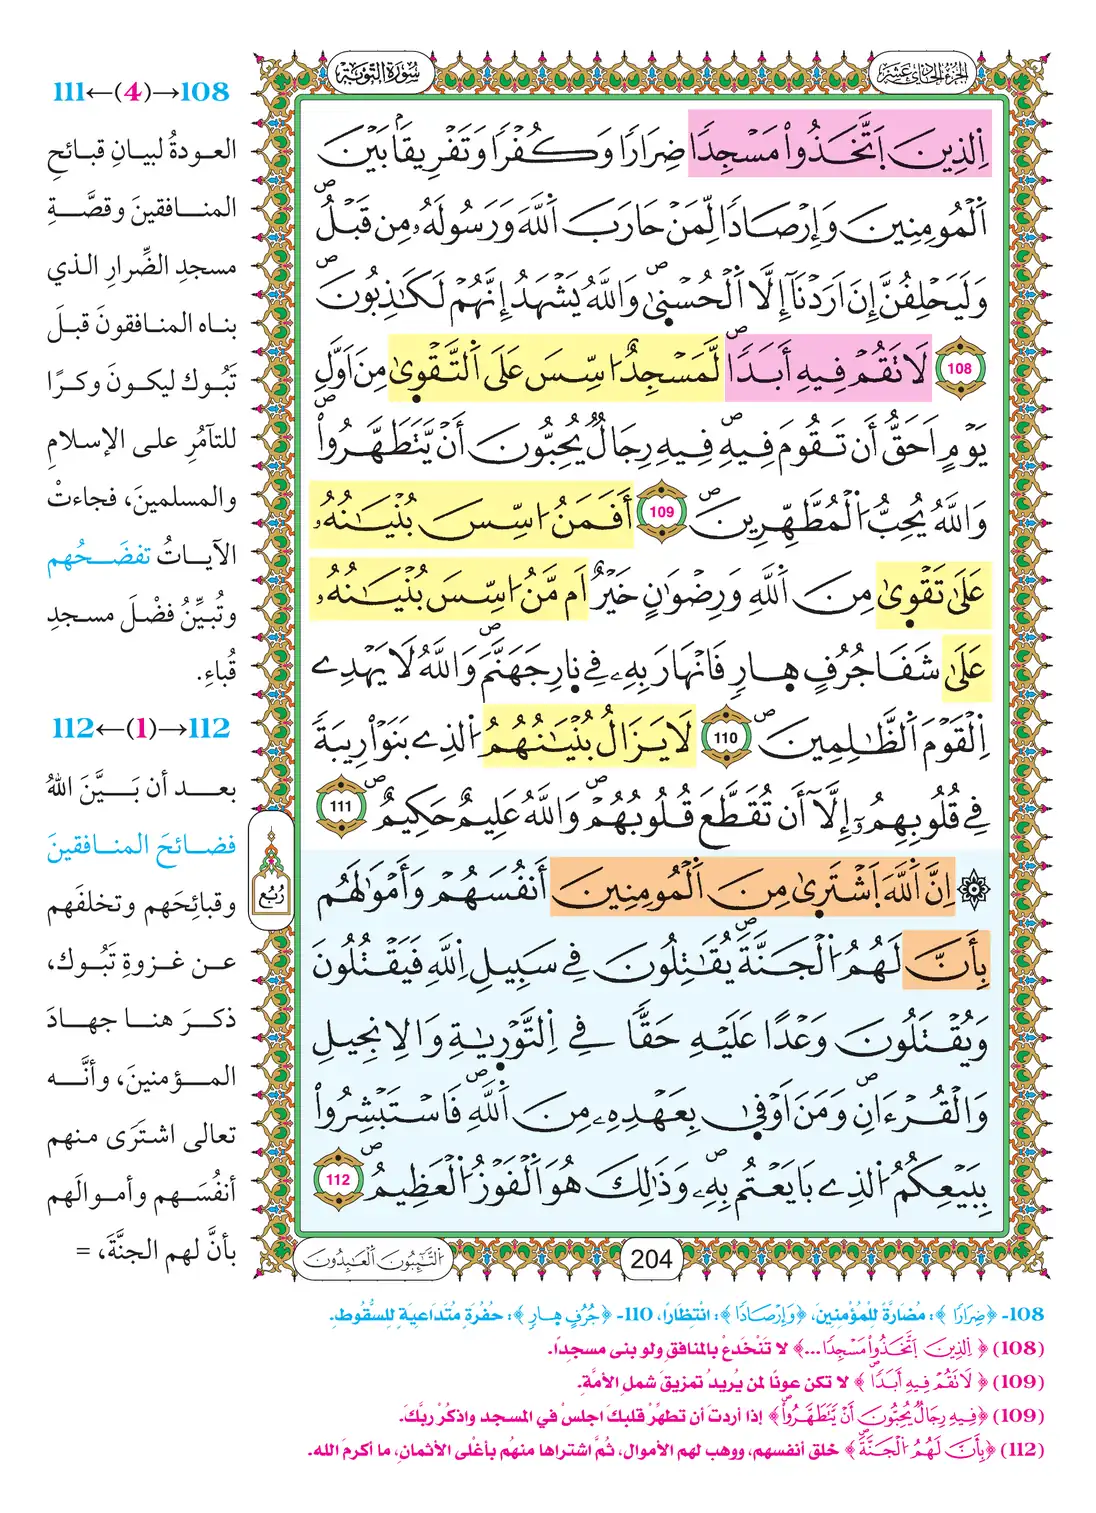 الجزء الحادي عشر
سورة التوبة
اِ۬لذِينَ اَ۪تَّخَذُواْ مَسْجِداٗ ضِرَاراٗ وَكُفْراٗ وَتَفْرِيقاَۢ بَيْنَ
اَ۬لْمُومِنِينَ وَإِرْصَاداٗ لِّمَنْ حَارَبَ اَ۬للَّهَ وَرَسُولَهُۥ مِن قَبْلُۖ
وَلَيَحْلِفُنَّ إِنَ اَرَدْنَآ إِلَّا اَ۬لْحُسْن۪يٰۖ وَاللَّهُ يَشْهَدُ إِنَّهُمْ لَكَٰذِبُونَۖ
108 لَا تَقُمْ فِيهِ أَبَداٗۖ لَّمَسْجِدٌ ا۟سِّسَ عَلَى اَ۬لتَّقْو۪يٰ مِنَ اَوَّلِ
يَوْمٍ اَحَقُّ أَن تَقُومَ فِيهِۖ فِيهِ رِجَالٞ يُحِبُّونَ أَنْ يَّتَطَهَّرُواْۖ
وَاللَّهُ يُحِبُّ اُ۬لْمُطَّهِّرِينَۖ 109 أَفَمَنُ ا۟سِّسَ بُنْيَٰنُهُۥ
عَلَىٰ تَقْو۪يٰ مِنَ اَ۬للَّهِ وَرِضْوَٰنٍ خَيْرٌ اَم مَّنُ ا۟سِّسَ بُنْيَٰنُهُۥ
عَلَىٰ شَفَا جُرُفٍ ه۪ارٖ فَانْهَارَ بِهِۦ فِے نارِ جَهَنَّمَۖ وَاللَّهُ لَا يَهْدِے
اِ۬لْقَوْمَ اَ۬لظَّٰلِمِينَۖ 110 لَا يَزَالُ بُنْيَٰنُهُمُ اُ۬لذِے بَنَوْاْ رِيبَةٗ
فِے قُلُوبِهِمُۥٓ إِلَّآ أَن تُقَطَّعَ قُلُوبُهُمْۖ وَاللَّهُ عَلِيمٌ حَكِيمٌۖ 111
۞ اِنَّ اَ۬للَّهَ اَ۪شْتَر۪يٰ مِنَ اَ۬لْمُومِنِينَ أَنفُسَهُمْ وَأَمْوَٰلَهُم
بِأَنَّ لَهُمُ اُ۬لْجَنَّةَۖ يُقَٰتِلُونَ فِے سَبِيلِ اِ۬للَّهِ فَيَقْتُلُونَ
وَيُقْتَلُونَ وَعْداً عَلَيْهِ حَقّاٗ فِے اِ۬لتَّوْر۪يٰةِ وَالِانجِيلِ
وَالْقُرْءَانِۖ وَمَنَ اَوْف۪يٰ بِعَهْدِهِۦ مِنَ اَ۬للَّهِۖ فَاسْتَبْشِرُواْ
بِبَيْعِكُمُ اُ۬لذِے بَايَعْتُم بِهِۦۖ وَذَٰلِكَ هُوَ اَ۬لْفَوْزُ اُ۬لْعَظِيمُۖ 112
204
اَ۬لتَّٰٓئِبُونَ اَ۬لْعَٰبِدُونَ
رُبُع
108→(4)←111
العودةُ لبيانِ قبائحِ
المنافقينَ وقصَّةِ
مسجدِ الضِّرارِ الذي
بناه المنافقونَ قبلَ
تَبُوك ليكونَ وكرًا
للتآمُرِ على الإسلامِ
والمسلمينَ، فجاءتْ
الآياتُ تفضَحُهم
وتُبيِّنُ فضْلَ مسجدِ
قُباءِ.
112→(1)←112
بعد أن بَيَّنَ اللهُ
فضائحَ المنافقينَ
وقبائِحَهم وتخلفَهم
عن غزوةِ تَبُوك،
ذكرَ هنا جهادَ
المؤمنينَ، وأنَّه
تعالى اشترَى منهم
أنفُسَهم وأموالَهم
بأنَّ لهم الجنَّةَ، =
108- ﴿ضِرَاراٗ﴾: مُضَارَّةً لِلْمُؤْمِنِينَ، ﴿وَإِرْصَاداٗ﴾: انْتِظَارًا، 110- ﴿جُرُفٍ ه۪ارٖ﴾: حُفْرَةٍ مُتَدَاعِيَةٍ لِلسُّقُوطِ.
(108) ﴿اِ۬لذِينَ اَ۪تَّخَذُواْ مَسْجِداٗ...﴾ لا تَنْخَدعْ بالمنافقِ ولو بنى مسجدًا.
(109) ﴿لَا تَقُمْ فِيهِ أَبَداٗۖ﴾ لا تكن عونًا لمن يُريدُ تمزيقَ شملِ الأمَّةِ.
(109) ﴿فِيهِ رِجَالٞ يُحِبُّونَ أَنْ يَّتَطَهَّرُواْۖ﴾ إذا أردتَ أن تطهِّرَ قلبَكَ اجلسْ في المسجد واذكُرْ ربَّكَ.
(112) ﴿بِأَنَّ لَهُمُ اُ۬لْجَنَّةَۖ﴾ خلق أنفسهم، ووهب لهم الأموال، ثُمَّ اشتراها منهُم بأغْلى الأثمانِ، ما أكرمَ الله.